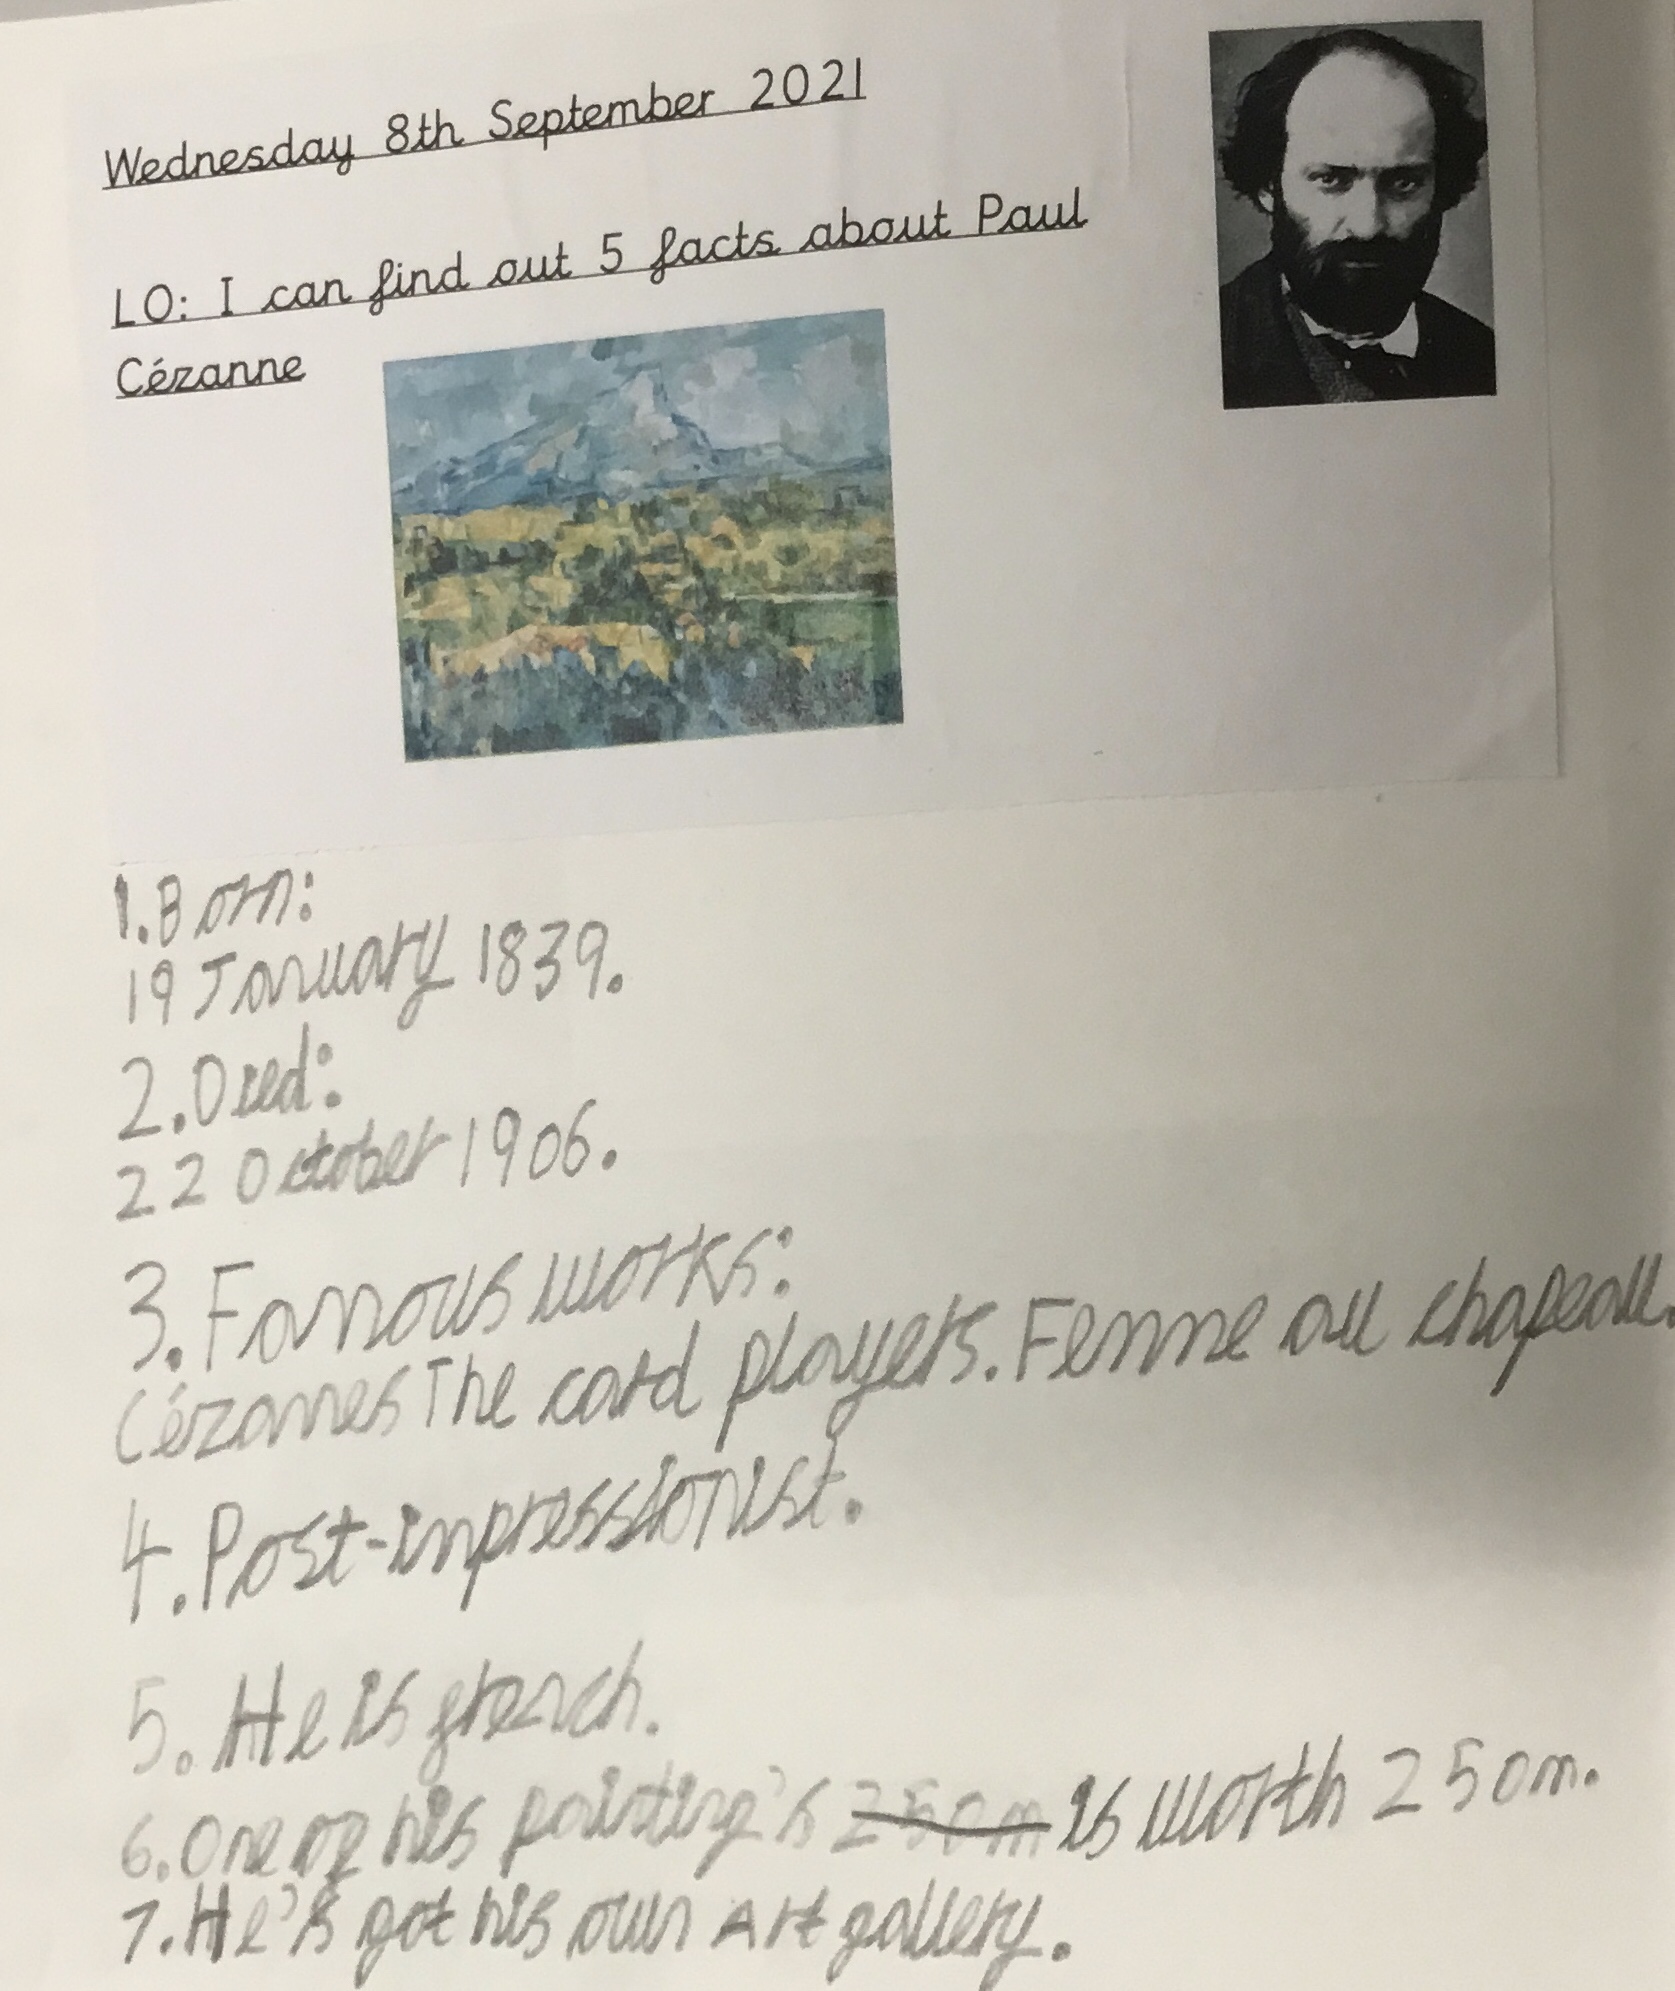 Wednesday 8th September 2021
LO: I can find out 5 facts about Paul
Cézanne
1.Born:
19 January 1839.
2.Died:
22 October 1906.
3.Famous works:
Cézannes The card players. Femme au chapeau.
4.Post-impressionist.
5. He is french.
6.One of his painting's 250m is worth 250m.
7.He's got his own Art gallery.